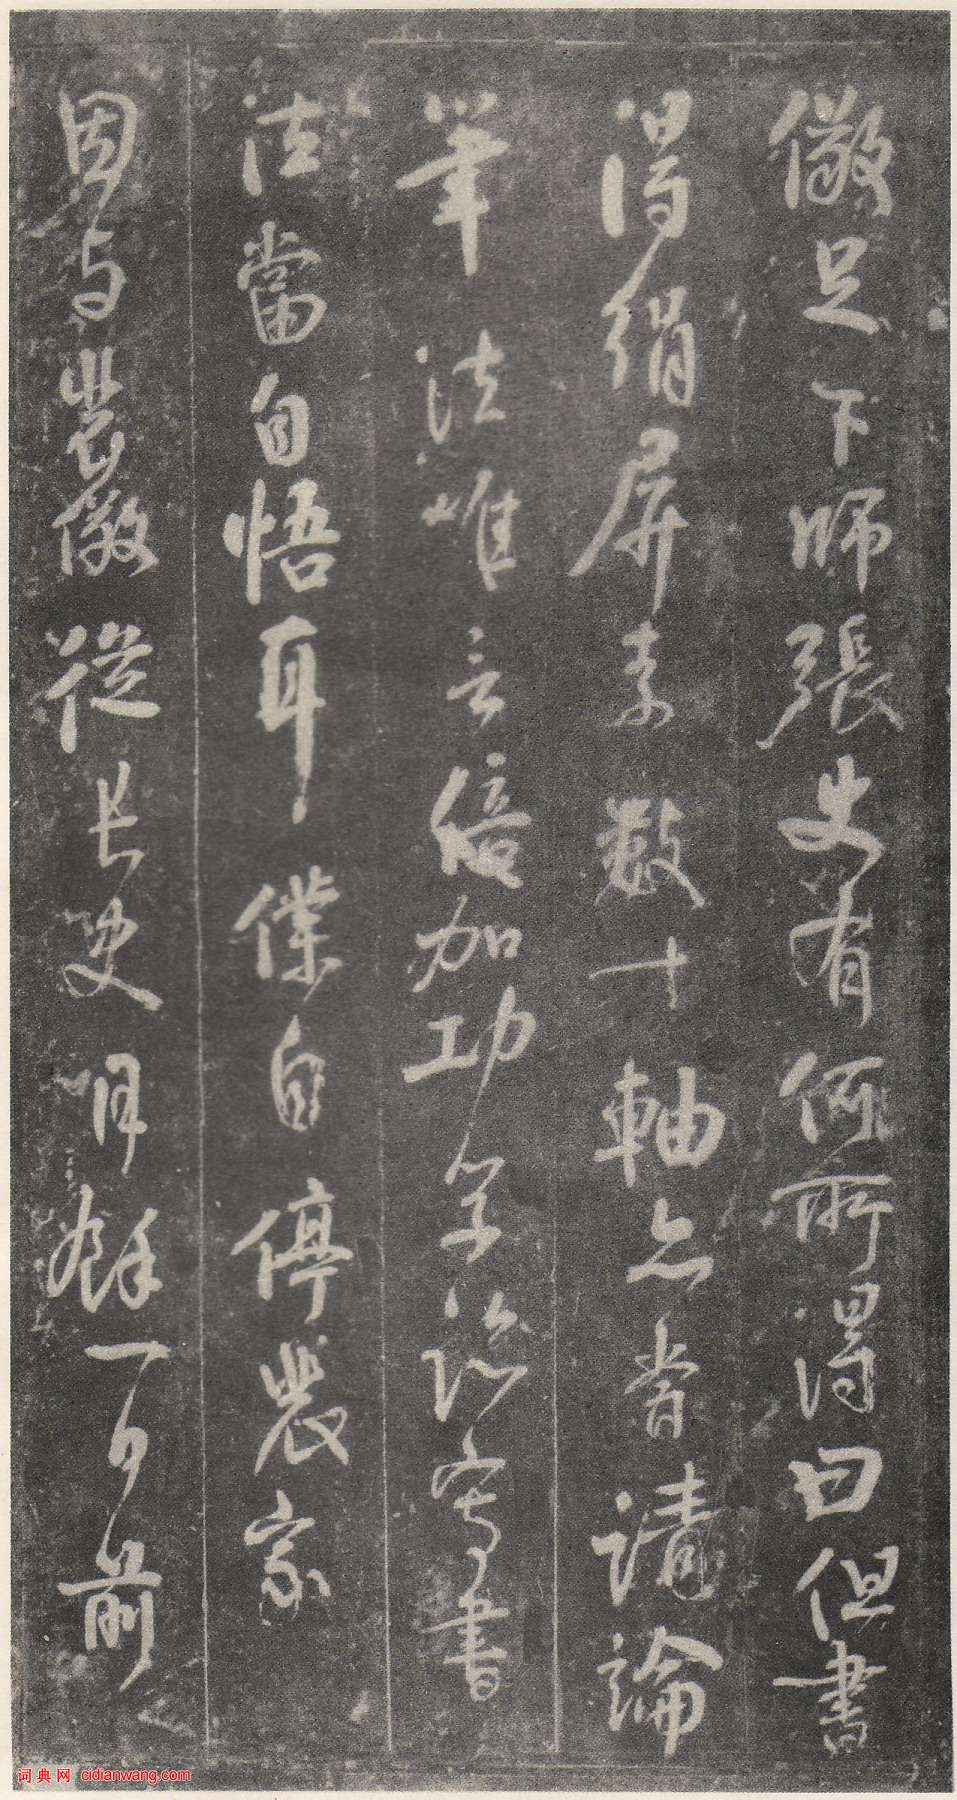 儆足下師張史有何所得曰但書
得絹屏素數十軸亦嘗請論
筆法唯言倍加工學臨寫書
法當自悟耳僕自停裴家
因與裴儆從長史月餘一可前
词典网 cidianwang.com